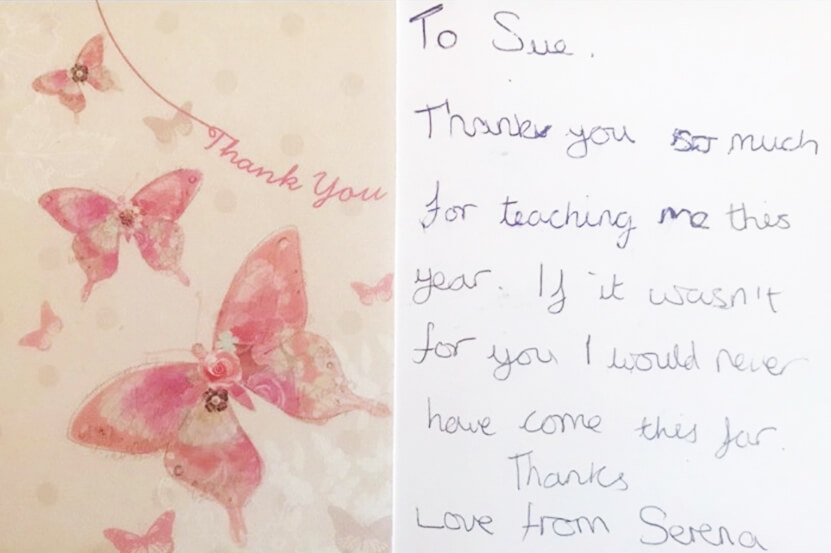 Thank You
To Sue.
Thank you so much
for teaching me this
year. If it wasn't
for you I would never
have come this far.
Thanks
Love from Serena